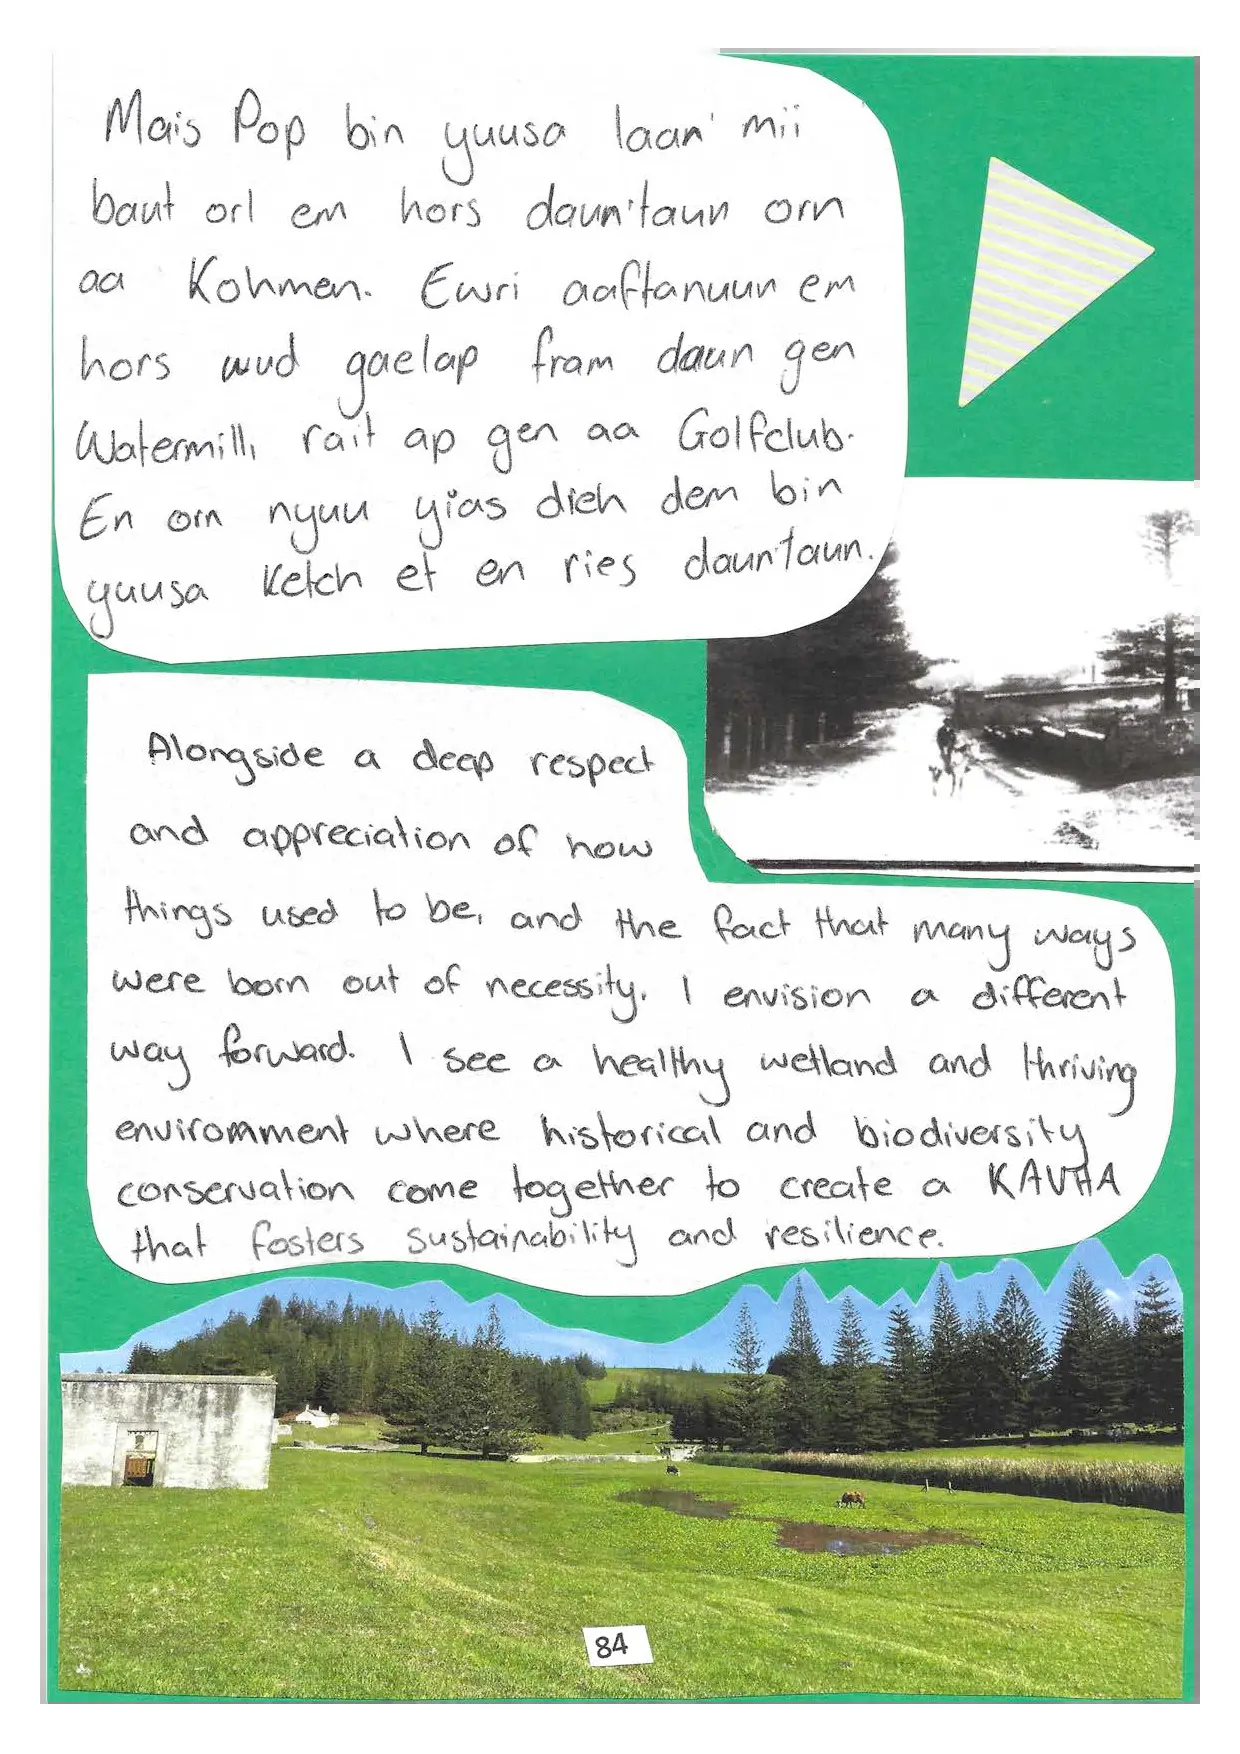 Mais Pop bin yuusa laan' mii
baut orl em hors daun'taun orn
aa Kohmen. Ewri aaftanuun em
hors wud gaelap fram daun gen
Watermill, rait ap gen aa Golfclub.
En orn nyuu yias dieh dem bin
yuusa ketch et en ries daun'taun.
Alongside a deep respect
and appreciation of how
things used to be, and the fact that many ways
were born out of necessity. I envision a different
way forward. I see a healthy wetland and thriving
enviromment where historical and biodiversity
conservation come together to create a KAVHA
that fosters sustainability and resilience.
84